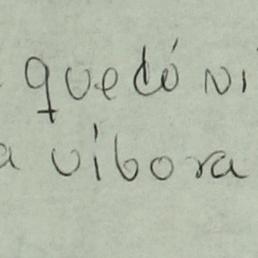 quedó vi
a vibora